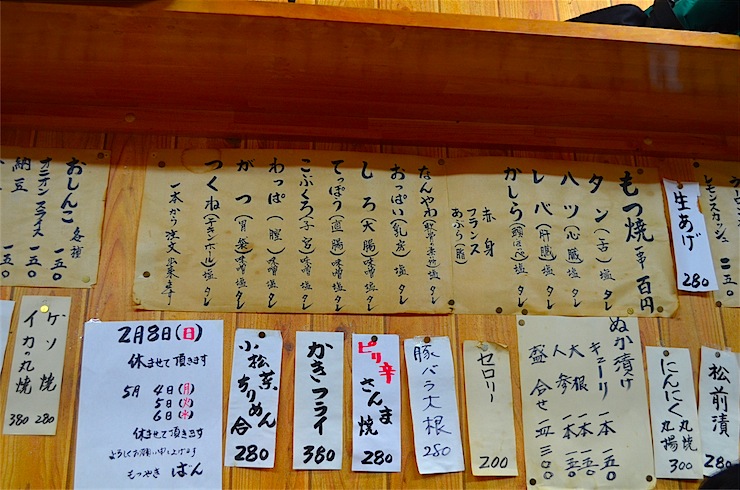 おしんこ 各種
納豆 一五〇
オニオンスライス 一五〇
もつ焼 一串 百円
タン(舌) 塩 タレ
ハツ(心臓) 塩 タレ
レバ(肝臓) 塩 タレ
かしら 塩 タレ
赤身
フランス
あぶら(脂)
なんやわ 塩 タレ
おっぱい(乳房) 塩 タレ
しろ(大腸) 味噌 塩 タレ
てっぽう(直腸) 味噌 塩 タレ
こぶくろ(子宮) 味噌 塩 タレ
わっぱ(膣) 味噌 塩 タレ
がつ(胃袋) 味噌 塩 タレ
つくね 塩 タレ
一本から注文出来ます
生あげ
280
レモンスカッシュ
ゲソ焼 280
イカの丸焼 380
2月8日(日)
休ませて頂きます
5月 4日(月)
5日(火)
6日(水)
休ませて頂きます
よろしくお願い申し上げます
もつやき ばん
小松菜ちりめん合
280
かきフライ
380
ピリ辛さんま焼
280
豚バラ大根
280
セロリー
200
ぬか漬け
キューリ 一本 一五〇
大根 一本 一五〇
人参 一本 一五〇
盛合せ 三〇〇
にんにく 丸焼 丸揚
300
松前漬
280